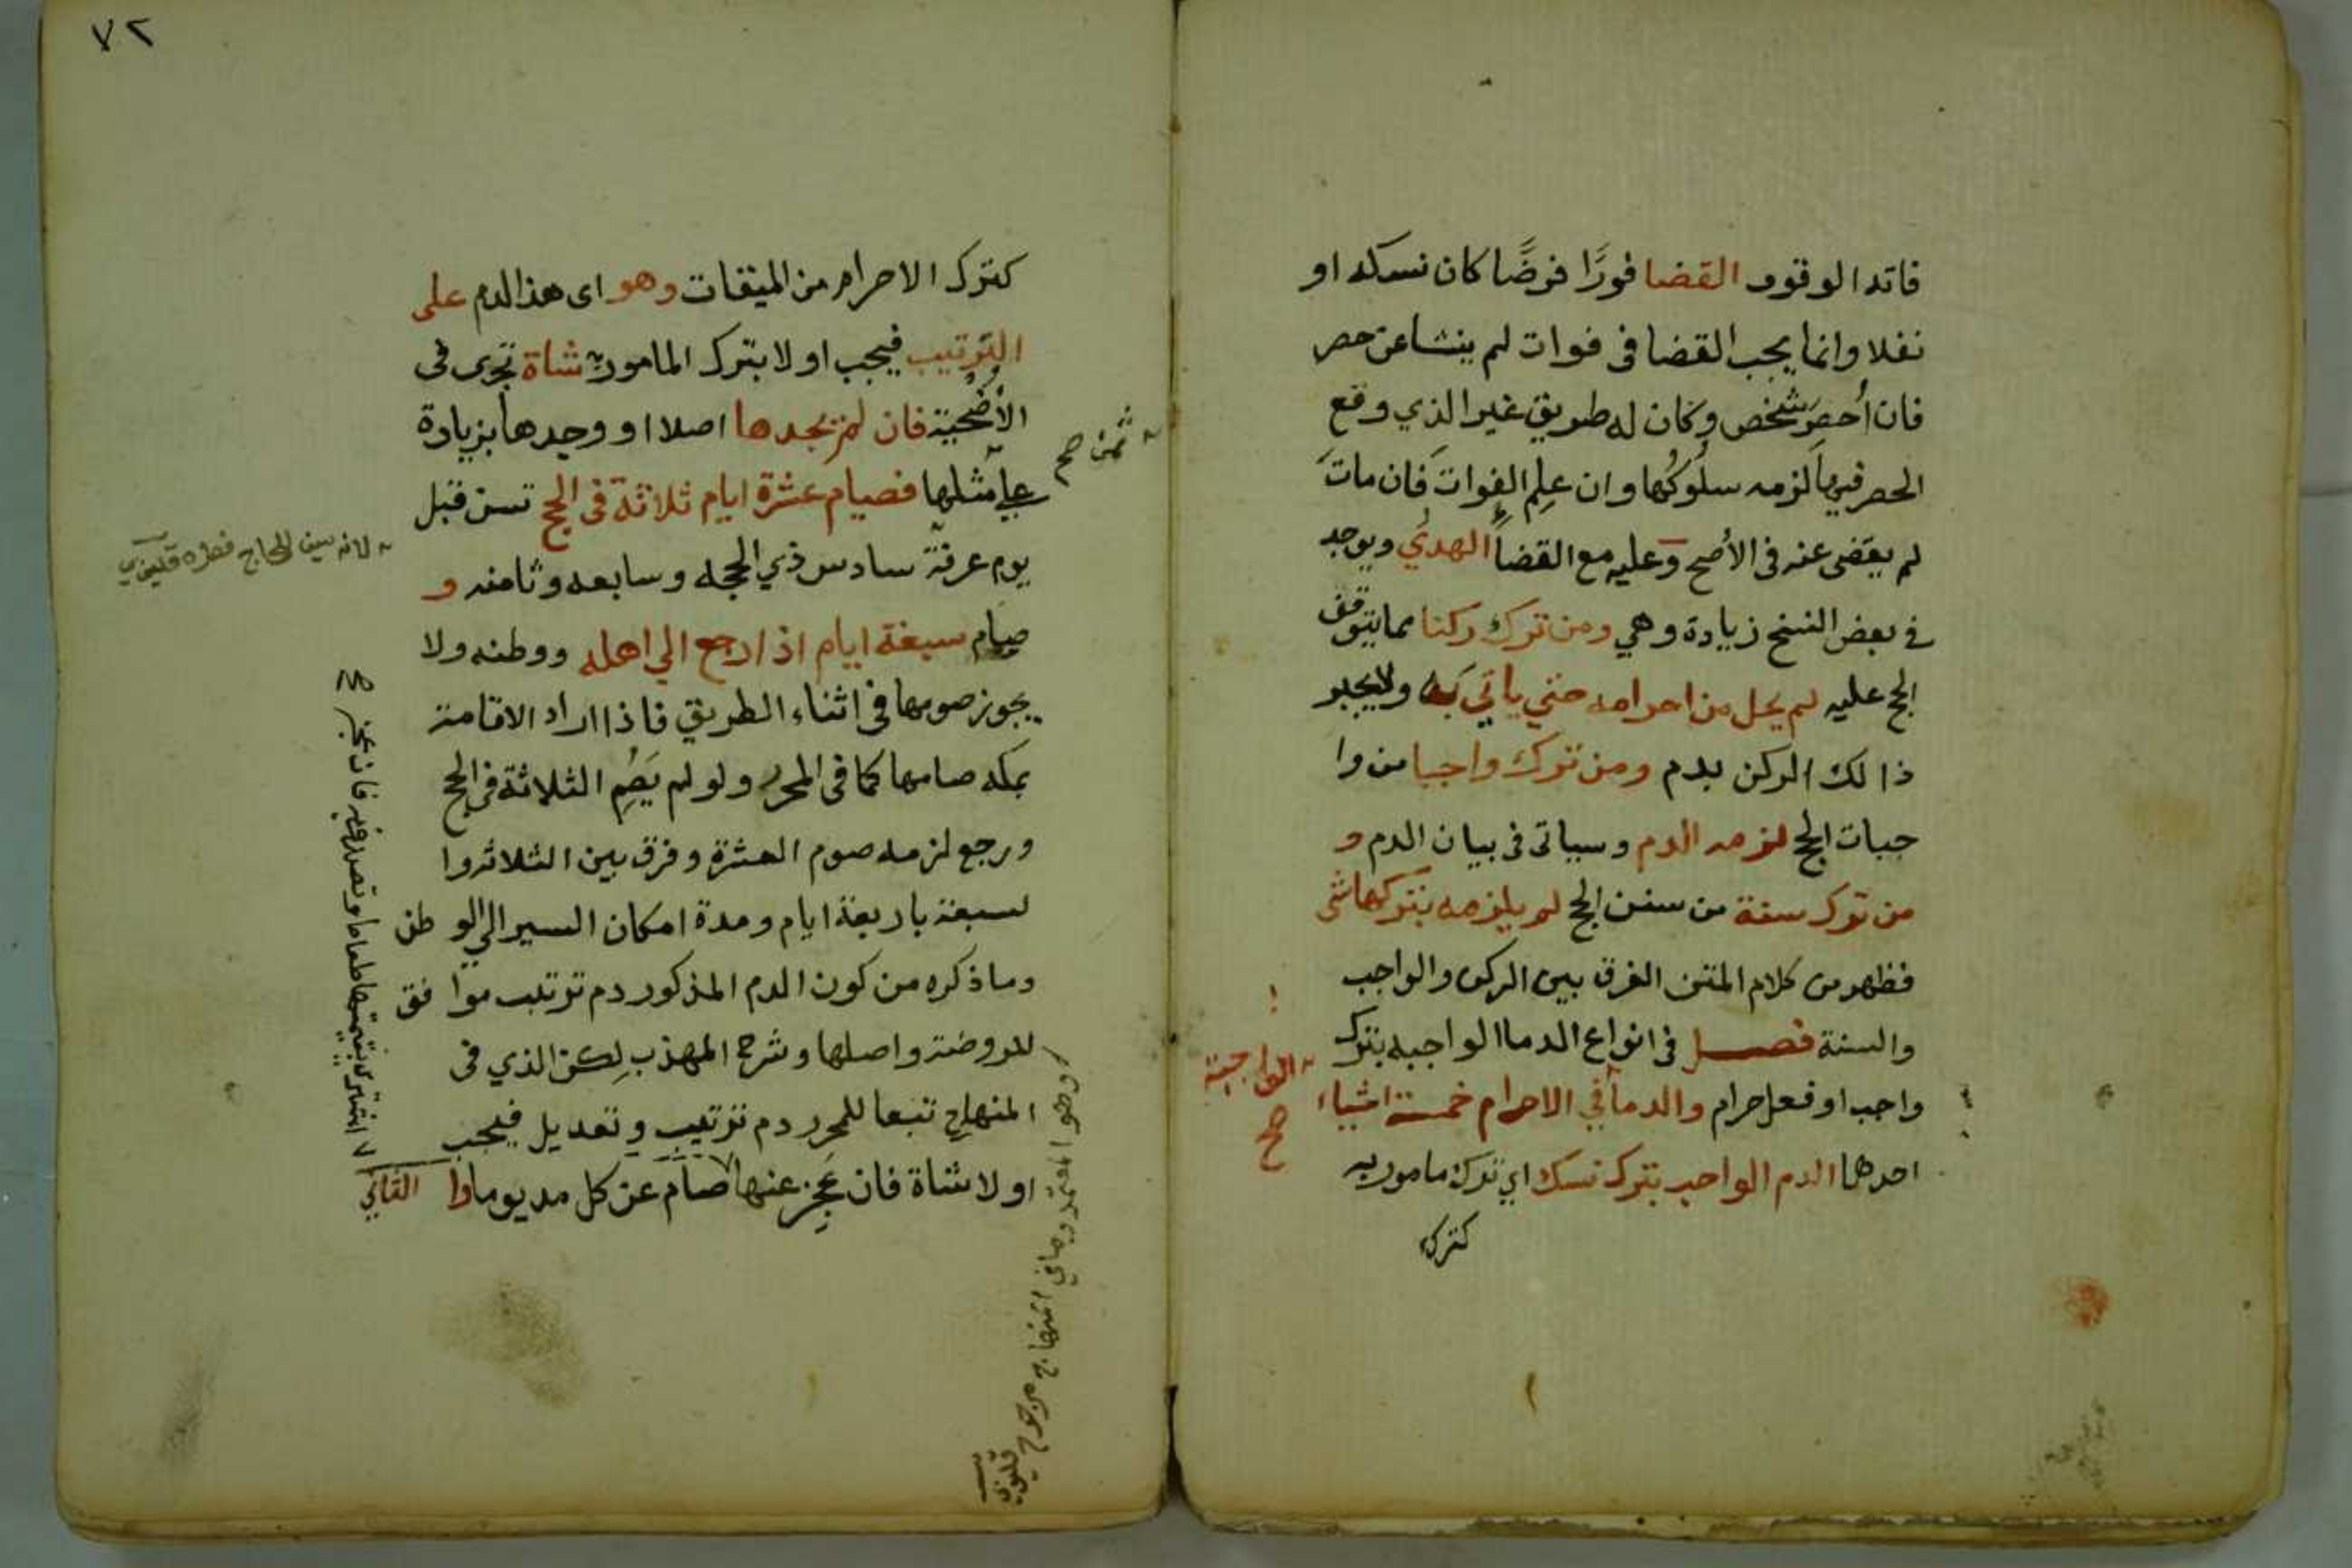 فاته الوقوف القضا فورًا فرضًا كان نسكه او
نفلا وانما يجب القضا فى فوات لم ينشا عن حصر
فان أُحصِرَ شخص وكان له طريق غير الذي وقع
الحصر فيها لزمه سلُوكُها وان عِلم الفوات فان مات
لم يقضى عنه فى الأصح وعليه مع القضا الهدي ويوجد
في بعض النسخ زيادة وهي ومن ترك ركنا مما يتوقف
الحج عليه لم يحل من احرامه حتي ياتي به ولا يجبر
ذالك الركن بدم ومن ترك واجبا من وا
جبات الحج لزمه الدم وسياتى فى بيان الدم و
من ترك سنة من سنن الحج لم يلزمه بتركها شى
فظهر من كلام المتن الفرق بين الركن والواجب
والسنة فصل فى انواع الدما الواجبه بترك
واجب او فعل حرام والدما في الاحرام خمسة اشياء
الواجبة
صح
احدها الدم الواجب بترك نسك اي ترك مامور به
كترك
٧٢
كترك الاحرام من الميقات وهو اى هذا الدم على
الترتيب فيجب اولا بترك المامور به شاة تجزى فى
الأُضحية فان لم يجدها اصلا او وجدها بزيادة
ثمن صح
على مثلها فصيام عشرة ايام ثلاثة فى الحج تسن قبل
يوم عرفة سادس ذي الحجه وسابعه وثامنه و
لانه يسن للحاج فطره قليوبي
صيام سبعة ايام اذا رجع الي اهله ووطنه ولا
يجوز صومها فى اثناء الطريق فاذا اراد الاقامة
بمكه صامها كما فى المحرر ولو لم يَصُم الثلاثة فى الحج
ورجع لزمه صوم العشرة وفرق بين الثلاثه وا
لسبعة باربعة ايام ومدة امكان السير الي الوطن
وما ذكره من كون الدم المذكور دم ترتيب موافق
للروضة واصلها وشرح المهذب لكن الذي فى
المنهاج تبعا للمحرر دم ترتيب وتعديل فيجب
اولا شاة فان عَجِز عنها صام عن كل مد يوما وا الثاني
اشترى بقيمتها طعاما وتصدق به فان عجز صح
وهو المعتمد وما في المنهاج مرجوح
قليوبي